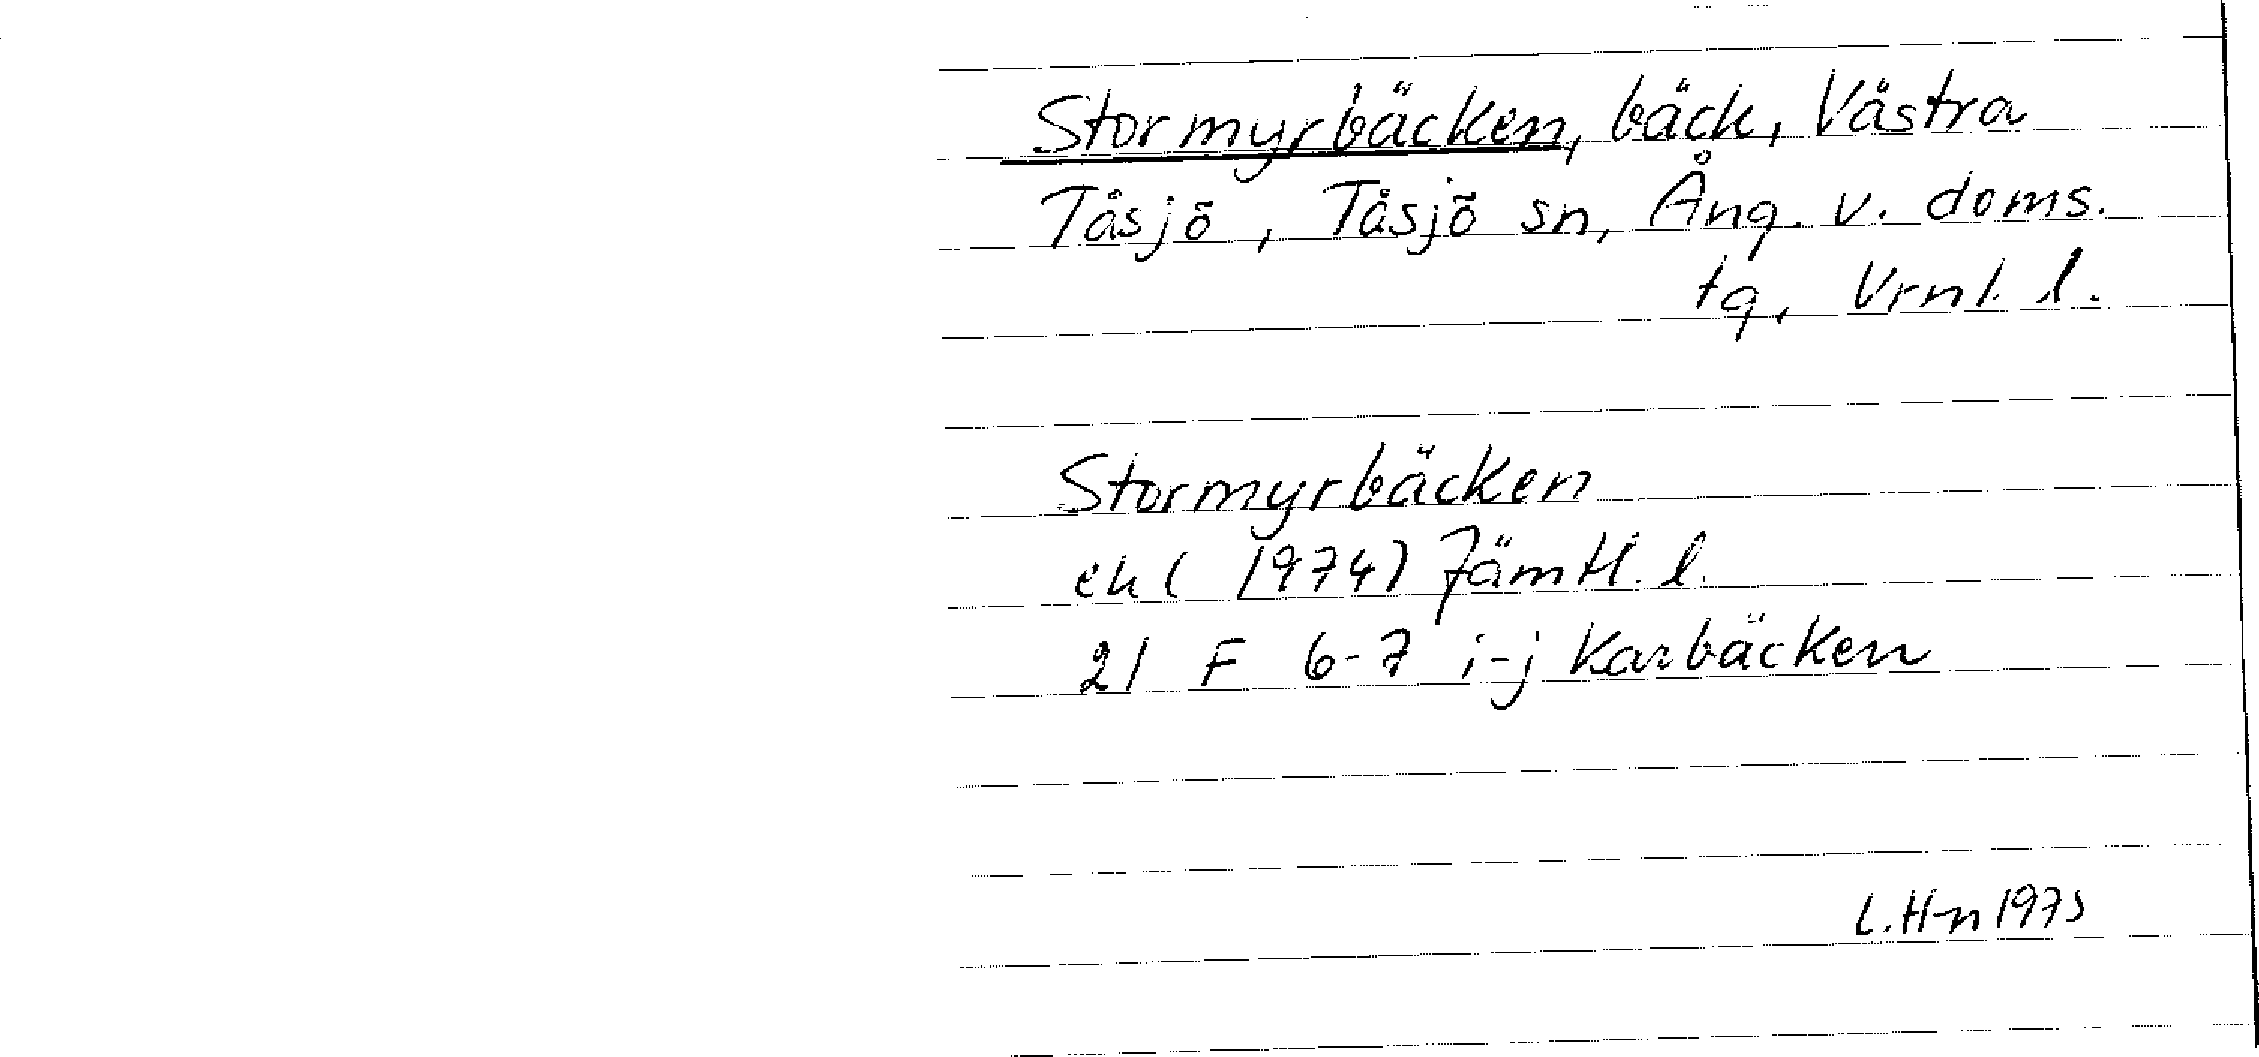 Stormyrbäcken, bäck, Västra
Tåsjö, Tåsjö sn, Ång. v. doms.
tg, Vrnl. l.
Stormyrbäcken
ek (1974) Jämtl. l.
21 F 6-7 i-j Karbäcken
L. H-n 1975